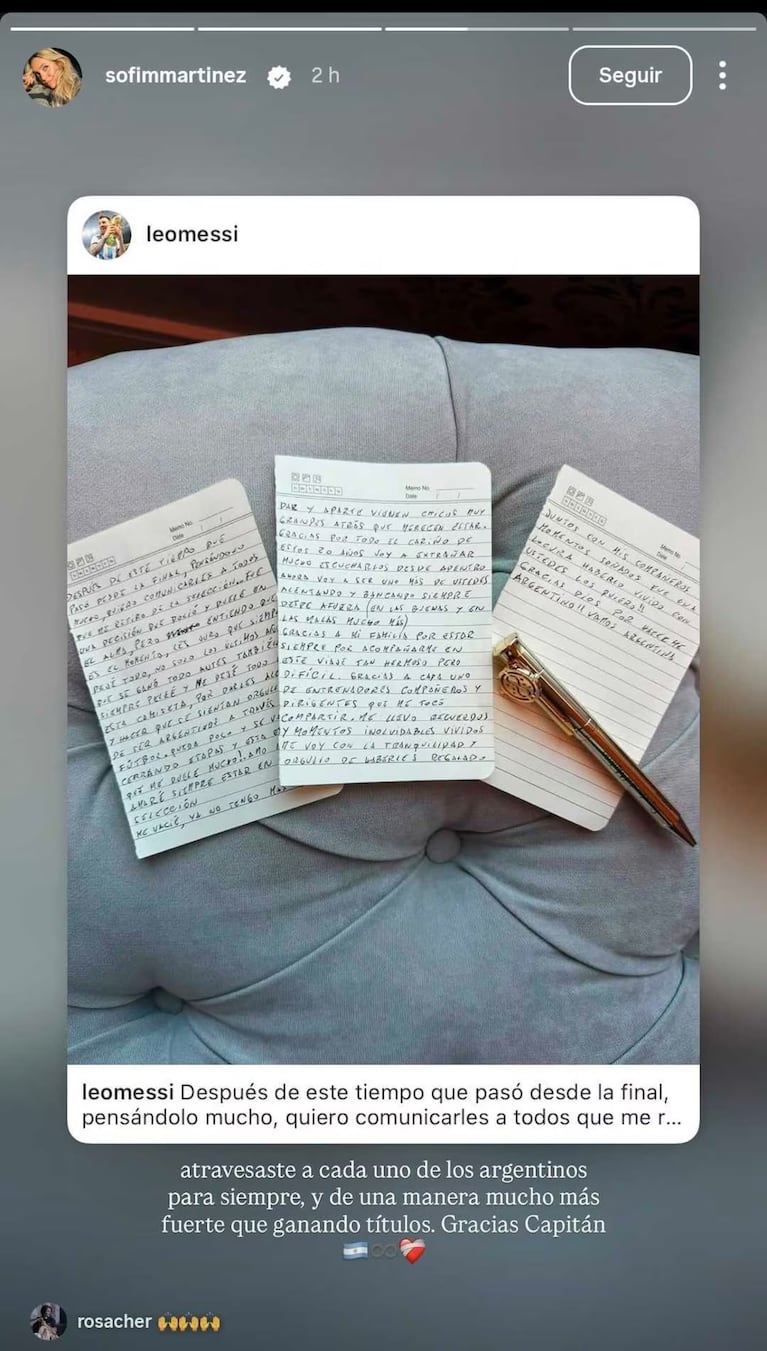 sofimmartinez 2 h Seguir
leomessi
Memo No.
Date / /
DESPUÉS DE ESTE TIEMPO QUE
PASÓ DESDE LA FINAL, PENSÁNDOLO
MUCHO, QUIERO COMUNICARLES A TODOS
QUE ME RETIRO DE LA SELECCIÓN. FUE
UNA DECISIÓN QUE DOLIÓ Y DUELE EN
EL ALMA, PERO ENTIENDO QUE
ES EL MOMENTO. LES JURO QUE SIEMPRE
DEJÉ TODO, NO SOLO LOS ÚLTIMOS AÑOS
QUE SE GANÓ TODO ANTES TAMBIÉN
SIEMPRE PELEÉ Y ME DEJÉ TODO
ESTA CAMISETA, POR DARLES
Y HACER QUE SE SIENTAN
DE SER ARGENTINOS A TRAVÉS
FÚTBOL. QUEDA POCO Y SE
CERRANDO ETAPAS Y ESTA
QUE ME DUELE MUCHO! AMO
AMARÉ SIEMPRE ESTAR EN
SELECCIÓN
ME VACIÉ, YA NO TENGO
Memo No.
Date / /
DAR Y APARTE VIENEN CHICOS MUY
GRANDES ATRÁS QUE MERECEN ESTAR.
GRACIAS POR TODO EL CARIÑO DE
ESTOS 20 AÑOS VOY A EXTRAÑAR
MUCHO ESCUCHARLOS DESDE ADENTRO
AHORA VOY A SER UNO MÁS DE USTEDES
ALENTANDO Y BANCANDO SIEMPRE
DESDE AFUERA (EN LAS BUENAS Y EN
LAS MALAS MUCHO MÁS)
GRACIAS A MI FAMILIA POR ESTAR
SIEMPRE POR ACOMPAÑARME EN
ESTE VIAJE TAN HERMOSO PERO
DIFÍCIL. GRACIAS A CADA UNO
DE ENTRENADORES COMPAÑEROS Y
DIRIGENTES QUE ME TOCÓ
COMPARTIR. ME LLEVO RECUERDOS
Y MOMENTOS INOLVIDABLES VIVIDOS
ME VOY CON LA TRANQUILIDAD Y
ORGULLO DE HABERLES REGALADO
Memo No.
Date / /
JUNTOS CON MIS COMPAÑEROS
MOMENTOS SOÑADOS QUE
LOCURA HABERLO VIVIDO CON
USTEDES LOS QUIERO!!
GRACIAS DIOS POR HACERME
ARGENTINO!! VAMOS ARGENTINA
leomessi Después de este tiempo que pasó desde la final,
pensándolo mucho, quiero comunicarles a todos que me r...
atravesaste a cada uno de los argentinos
para siempre, y de una manera mucho más
fuerte que ganando títulos. Gracias Capitán
🇦🇷♾️❤️‍🩹
rosacher 🙌🙌🙌